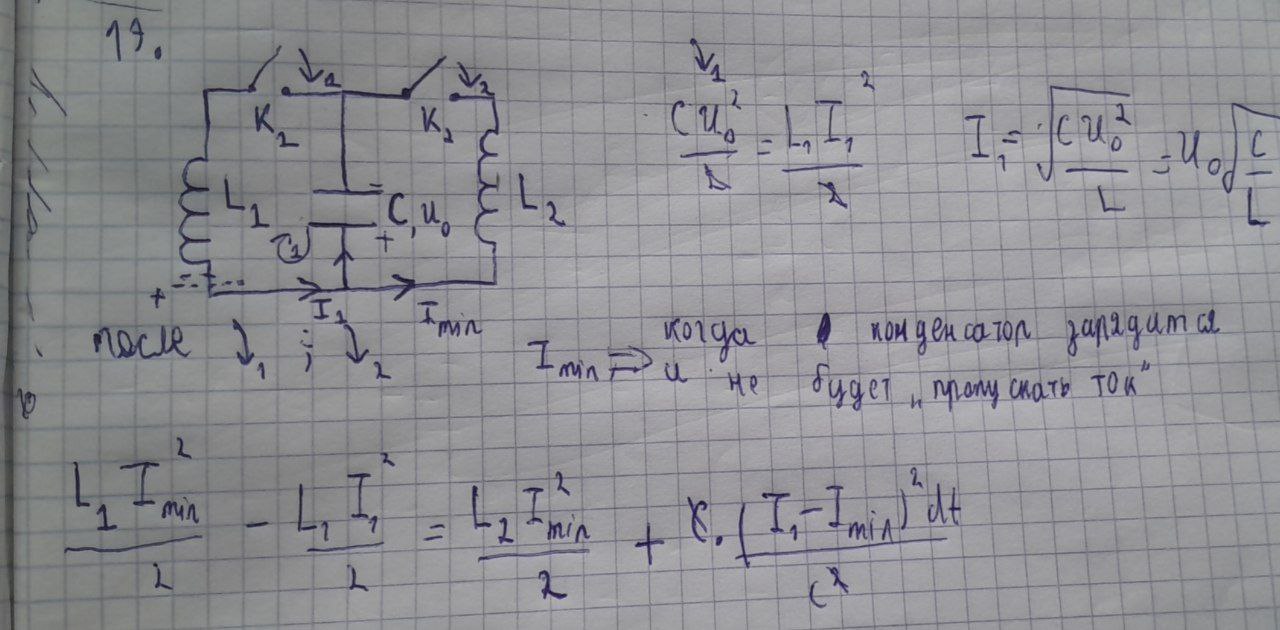 19.
K₂ ↓₁ K₁ ↓₂
L₁ C, U₀ L₂
- +
+ I₁ I_min
после ↓₁ ; ↓₂
↓₁
CU₀²/2 = L₁I₁²/2 I₁ = √(CU₀²/L) = U₀√(C/L)
I_min ⇒ когда конденсатор зарядится
и не будет „пропускать ток"
L₁I_min²/2 - L₁I₁²/2 = L₂I_min²/2 + C·(I₁-I_min)²dt/C²